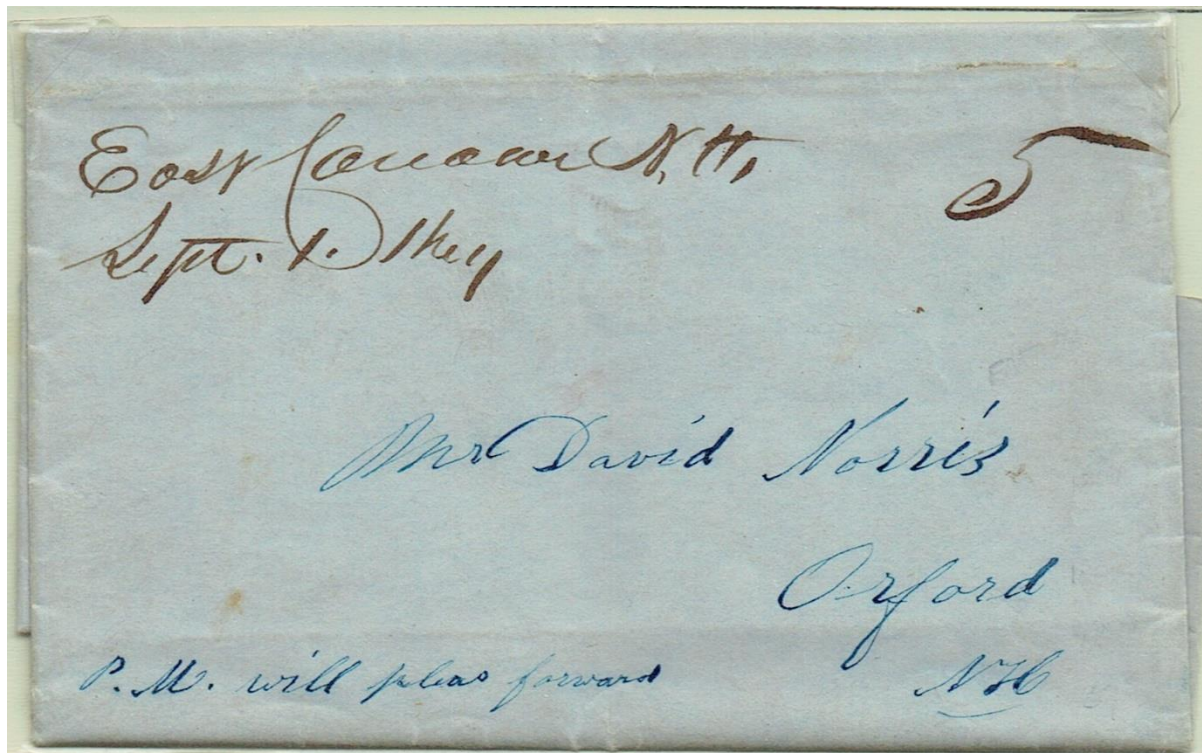 East Canaan N. H, 5
Sept. 1.
Mr David Norris
Orford
P. M. will pleas forward NH